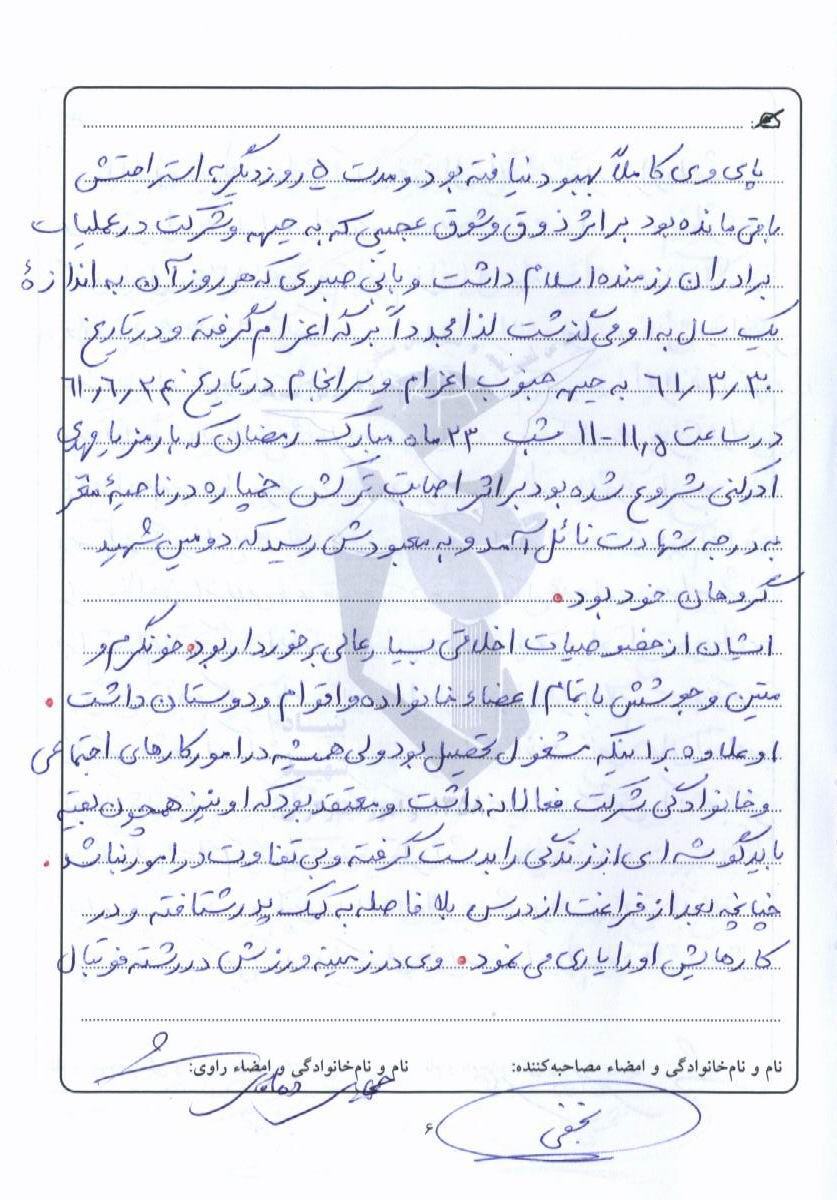 پای وی کاملاً بهبود نیافته بود و مدت ۵ روز دیگر به استراحتش
باقی مانده بود بر اثر ذوق و شوق عجیبی که به جبهه و شرکت در عملیات
برادران رزمنده اسلام داشت و با بی صبری که هر روز آن به اندازهٔ
یک سال به او می گذشت لذا مجدداً برگه اعزام گرفته و در تاریخ
۶۱٫۳٫۳۰ به جبهه جنوب اعزام و سرانجام در تاریخ
در ساعت ۱۱٫۵-۱۱ شب ۲۳ ماه مبارک رمضان که با رمز یا مهدی
ادرکنی شروع شده بود بر اثر اصابت ترکش خمپاره در ناحیهٔ مغز
به درجه شهادت نائل آمد و به معبودش رسید که دومین شهید
گروهان خود بود.
ایشان از خصوصیات اخلاقی بسیار عالی برخوردار بود. خونگرم و
متین و جوشش با تمام اعضاء خانواده و اقوام و دوستان داشت.
او علاوه بر اینکه مشغول تحصیل بود ولی همیشه در امور کارهای اجتماعی
و خانوادگی شرکت فعالانه داشت و معتقد بود که او نیز همچون بقیه
باید گوشه ای از زندگی را بدست گرفته و بی تفاوت در امور نباشد.
چنانچه بعد از فراغت از درس بلا فاصله به کمک پدر شتافته و در
کارهایش او را یاری می نمود. وی در زمینه ورزش در رشته فوتبال
نام و نام خانوادگی و امضاء مصاحبه‌کننده: نام و نام خانوادگی و امضاء راوی:
نجفی
۶